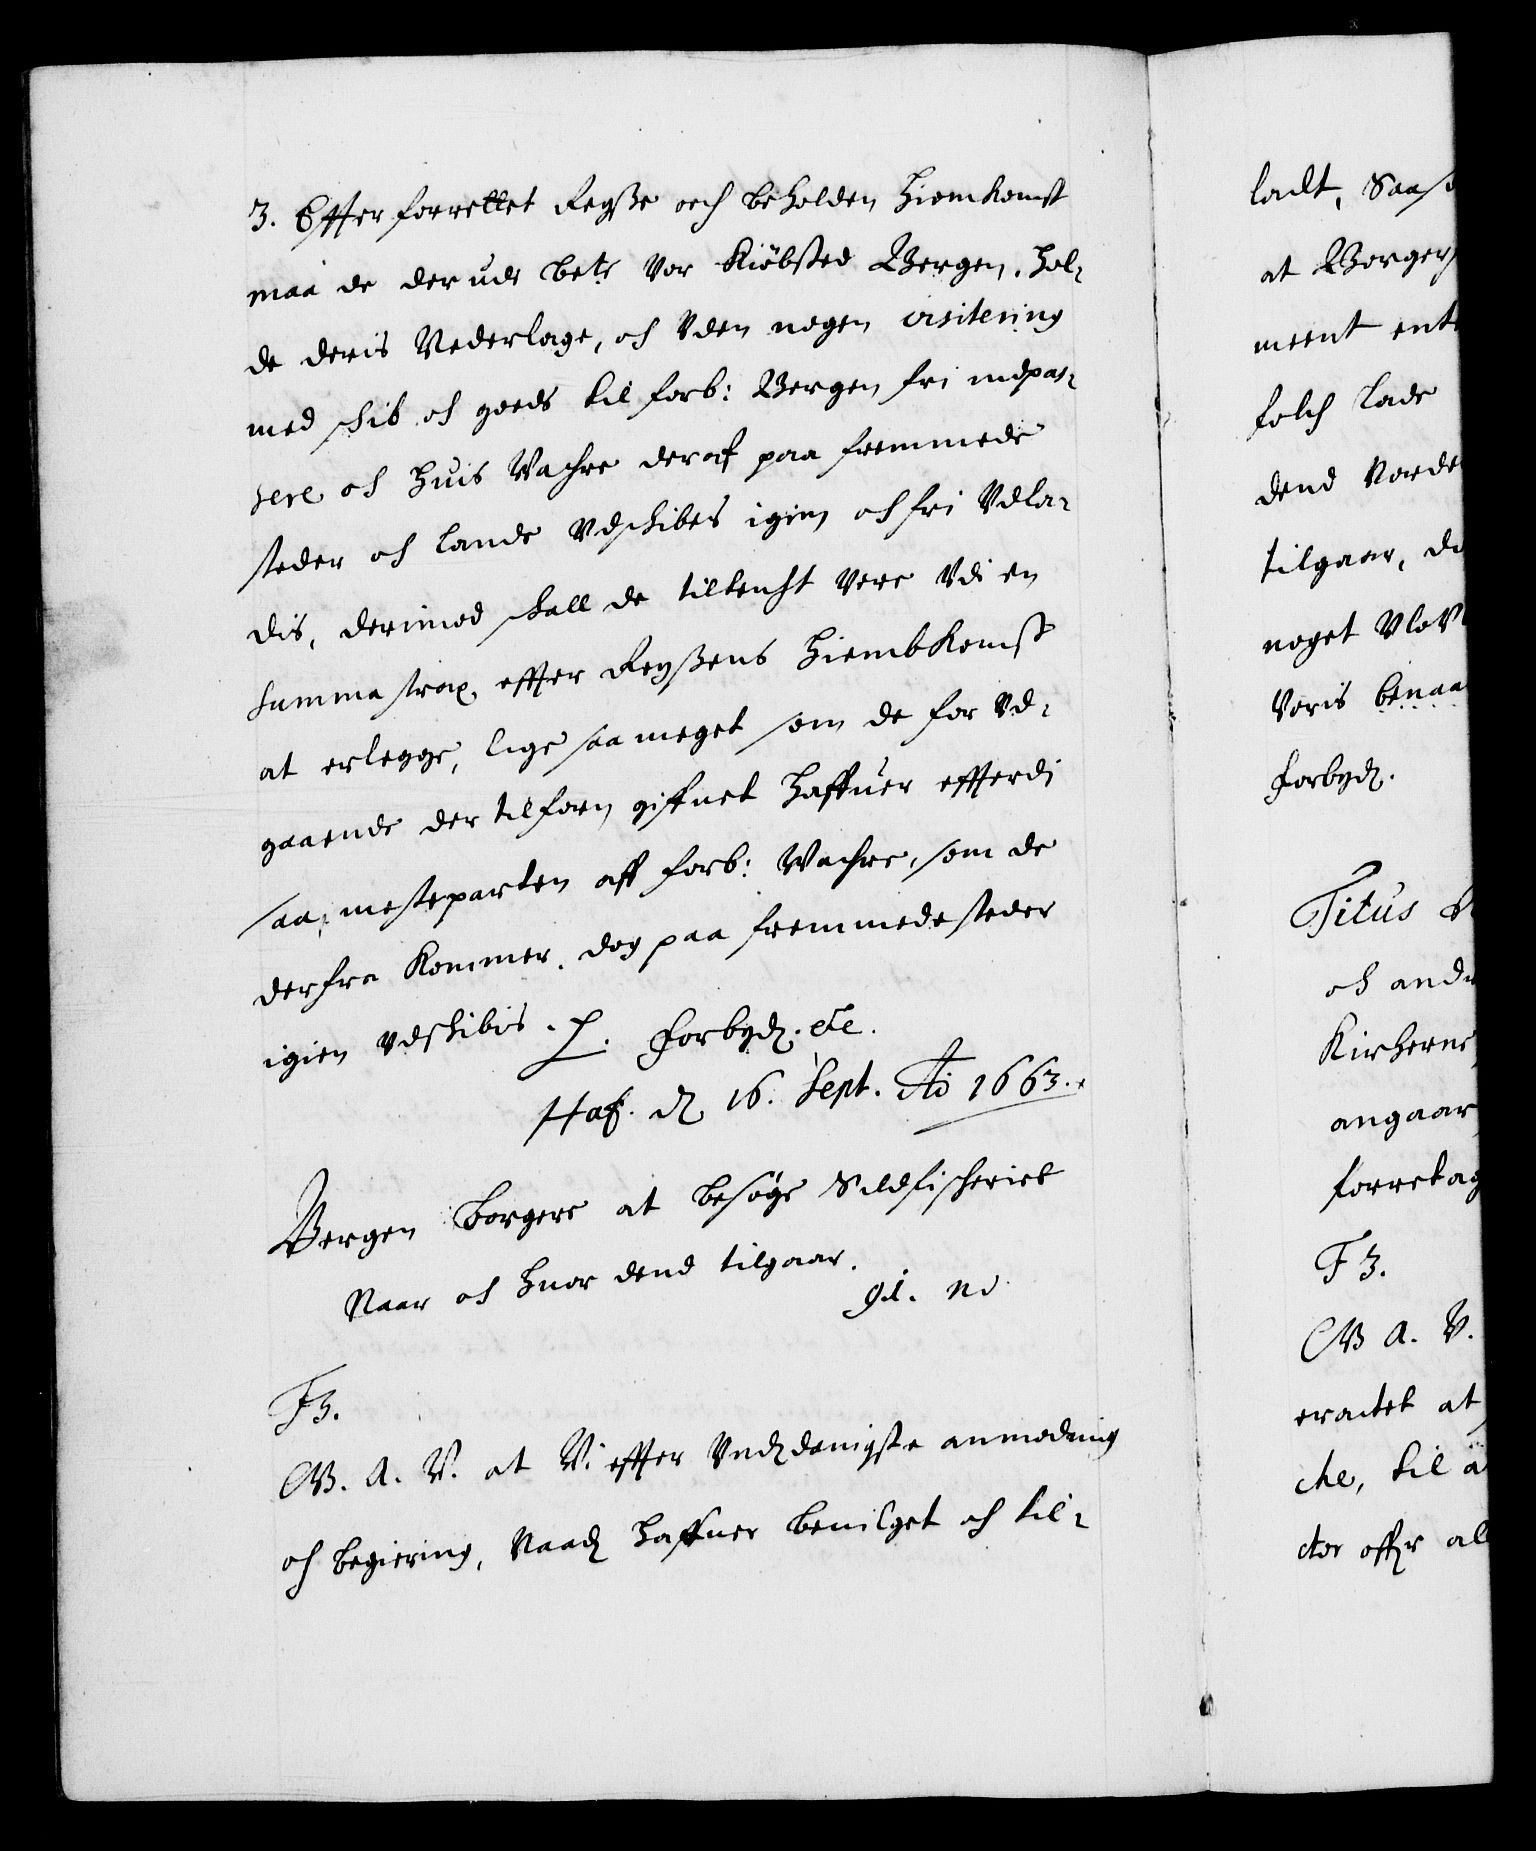 3. Effter forrettet Reysse och beholden Hiemkomst
maa de derude bete vor Kiøbsted Bergen, hol-
de deris Nederlage, och Vden nogen visitering
med skib och goeds til forb: Bergen fri indpas-
sere, och huis Wahre deraf paa fremmede
steder och Lande Vdskibes igien och fri Vdla-
dis, derimod skall de tiltencht vere Vdi en
summa strax, effter Reyssens Hiembkomst
at erlegge, lige saa meget som de for Vd-
gaaende der tilforn gifuet haffuer effterdi
saa mesteparten aff forb: Wahre, som de
derfra kommer, dog paa fremmede steder
igien Vdskibis. Forbyd. etc.
Haf. d 16. Sept. Ao 1663.
Bergen Borgere at besøge Sildfischeriet
Naar och huor dend tilgaar.
F3.
G.A.V. at Vi effter Vnderdanigste anmodning
och begiering, Naad haffuer beuilget och til-
ladt, Saas
at Borgers
meent ent
folch lade
dend Norde
tilgaar, du
noget Vlov
Voris benaa
Forbyd.
Titus
och andr
Kircherne
angaar
forretag
F3.
G A. V.
eractet at
che, til a
ctor offr all